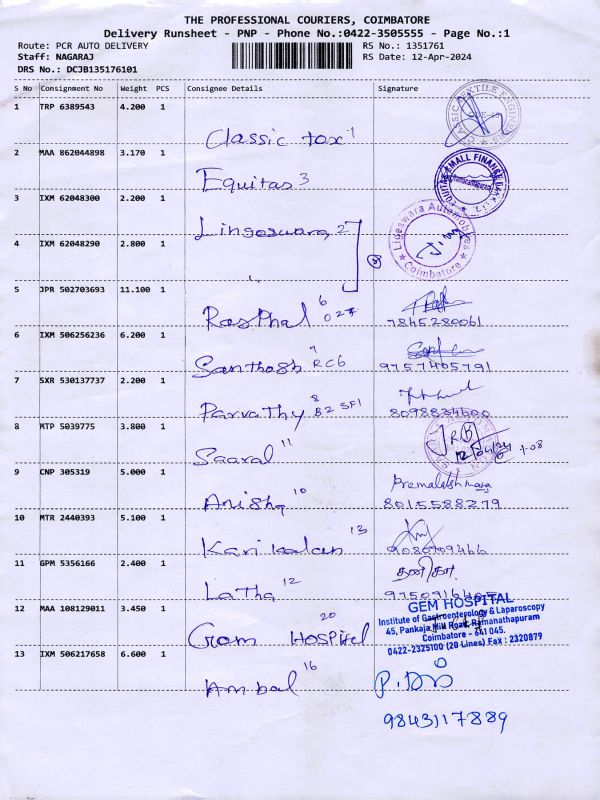 THE PROFESSIONAL COURIERS, COIMBATORE
Delivery Runsheet - PNP - Phone No.:0422-3505555 - Page No.:1
Route: PCR AUTO DELIVERY
RS No.: 1351761
Staff: NAGARAJ
RS Date: 12-Apr-2024
DRS No.: DCJB135176101
S No Consignment No Weight PCS Consignee Details Signature
1 TRP 6389543 4.200 1
Classic tox 1
CLASSIC TEXTILE ENGINEE
2 MAA 862044898 3.170 1
Equitas 3
SMALL FINANCE BANK
3 IXM 62048300 2.200 1
Lingeswara 2
Lideswara Automobiles
Coimbatore
4 IXM 62048290 2.800 1
5 JPR 502703693 11.100 1
Rasthal 6
7845280061
6 IXM 506256236 6.200 1
Santhosh 7 RC6
9757405791
7 SXR 530137737 2.200 1
Parvathy 8 B2 SF1
8098834600
8 MTP 5039775 3.800 1
Saaral 11
9 CNP 305319 5.000 1
Anisha 10
8015588279
10 MTR 2440393 5.100 1
Karikalan 13
9080709466
11 GPM 5356166 2.400 1
Latha 12
தனிகா
12 MAA 108129011 3.450 1
Gem HOSPitel 20
GEM HOSPITAL
Institute of Gastroenterology & Laparoscopy
45, Pankaja Mill Road, Ramanathapuram
Coimbatore - 641 045.
0422-2325100 (20 Lines) Fax : 2320879
13 IXM 506217658 6.600 1
Ambal 16
9843117889